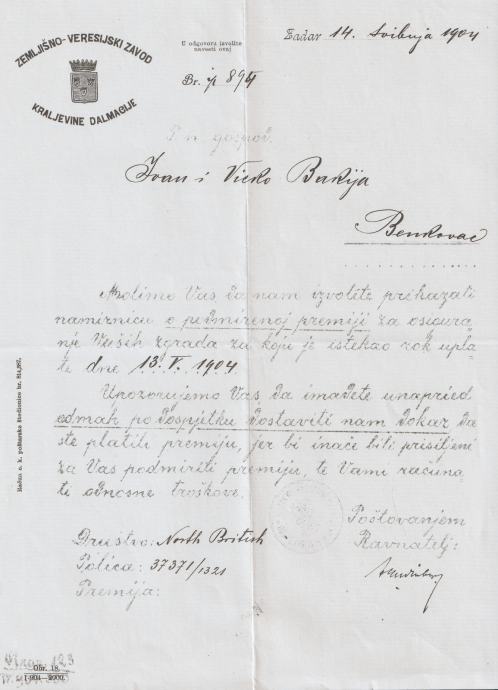 ZEMLJIŠNO-VERESIJSKI ZAVOD
KRALJEVINE DALMACIJE
U odgovoru izvolite
navesti ovaj
Br. 894
Zadar 14. Svibnja 1904
P. n. gospod.
Ivan i Vicko Bakija
Benkovac
Molimo Vas, da nam izvolite prikazati
namirnicu o podmirenoj premiji za osigura
nje Vaših zgrada za koju je istekao rok upla
te dne 13. V. 1904
Upozorujemo Vas, da imadete unapried
odmah po dospjetku dostaviti nam dokaz da
ste platili premiju, jer bi inače bili prisiljeni
za Vas podmiriti premiju, te Vami računa
ti odnosne troškove.
Poštovanjem
Ravnatelj:
Društvo: North British
Polica: 37371/1321
Premija:
Račun c. k. poštarske štedionice br. 814,267.
Obr. 18.
1-904—2000.